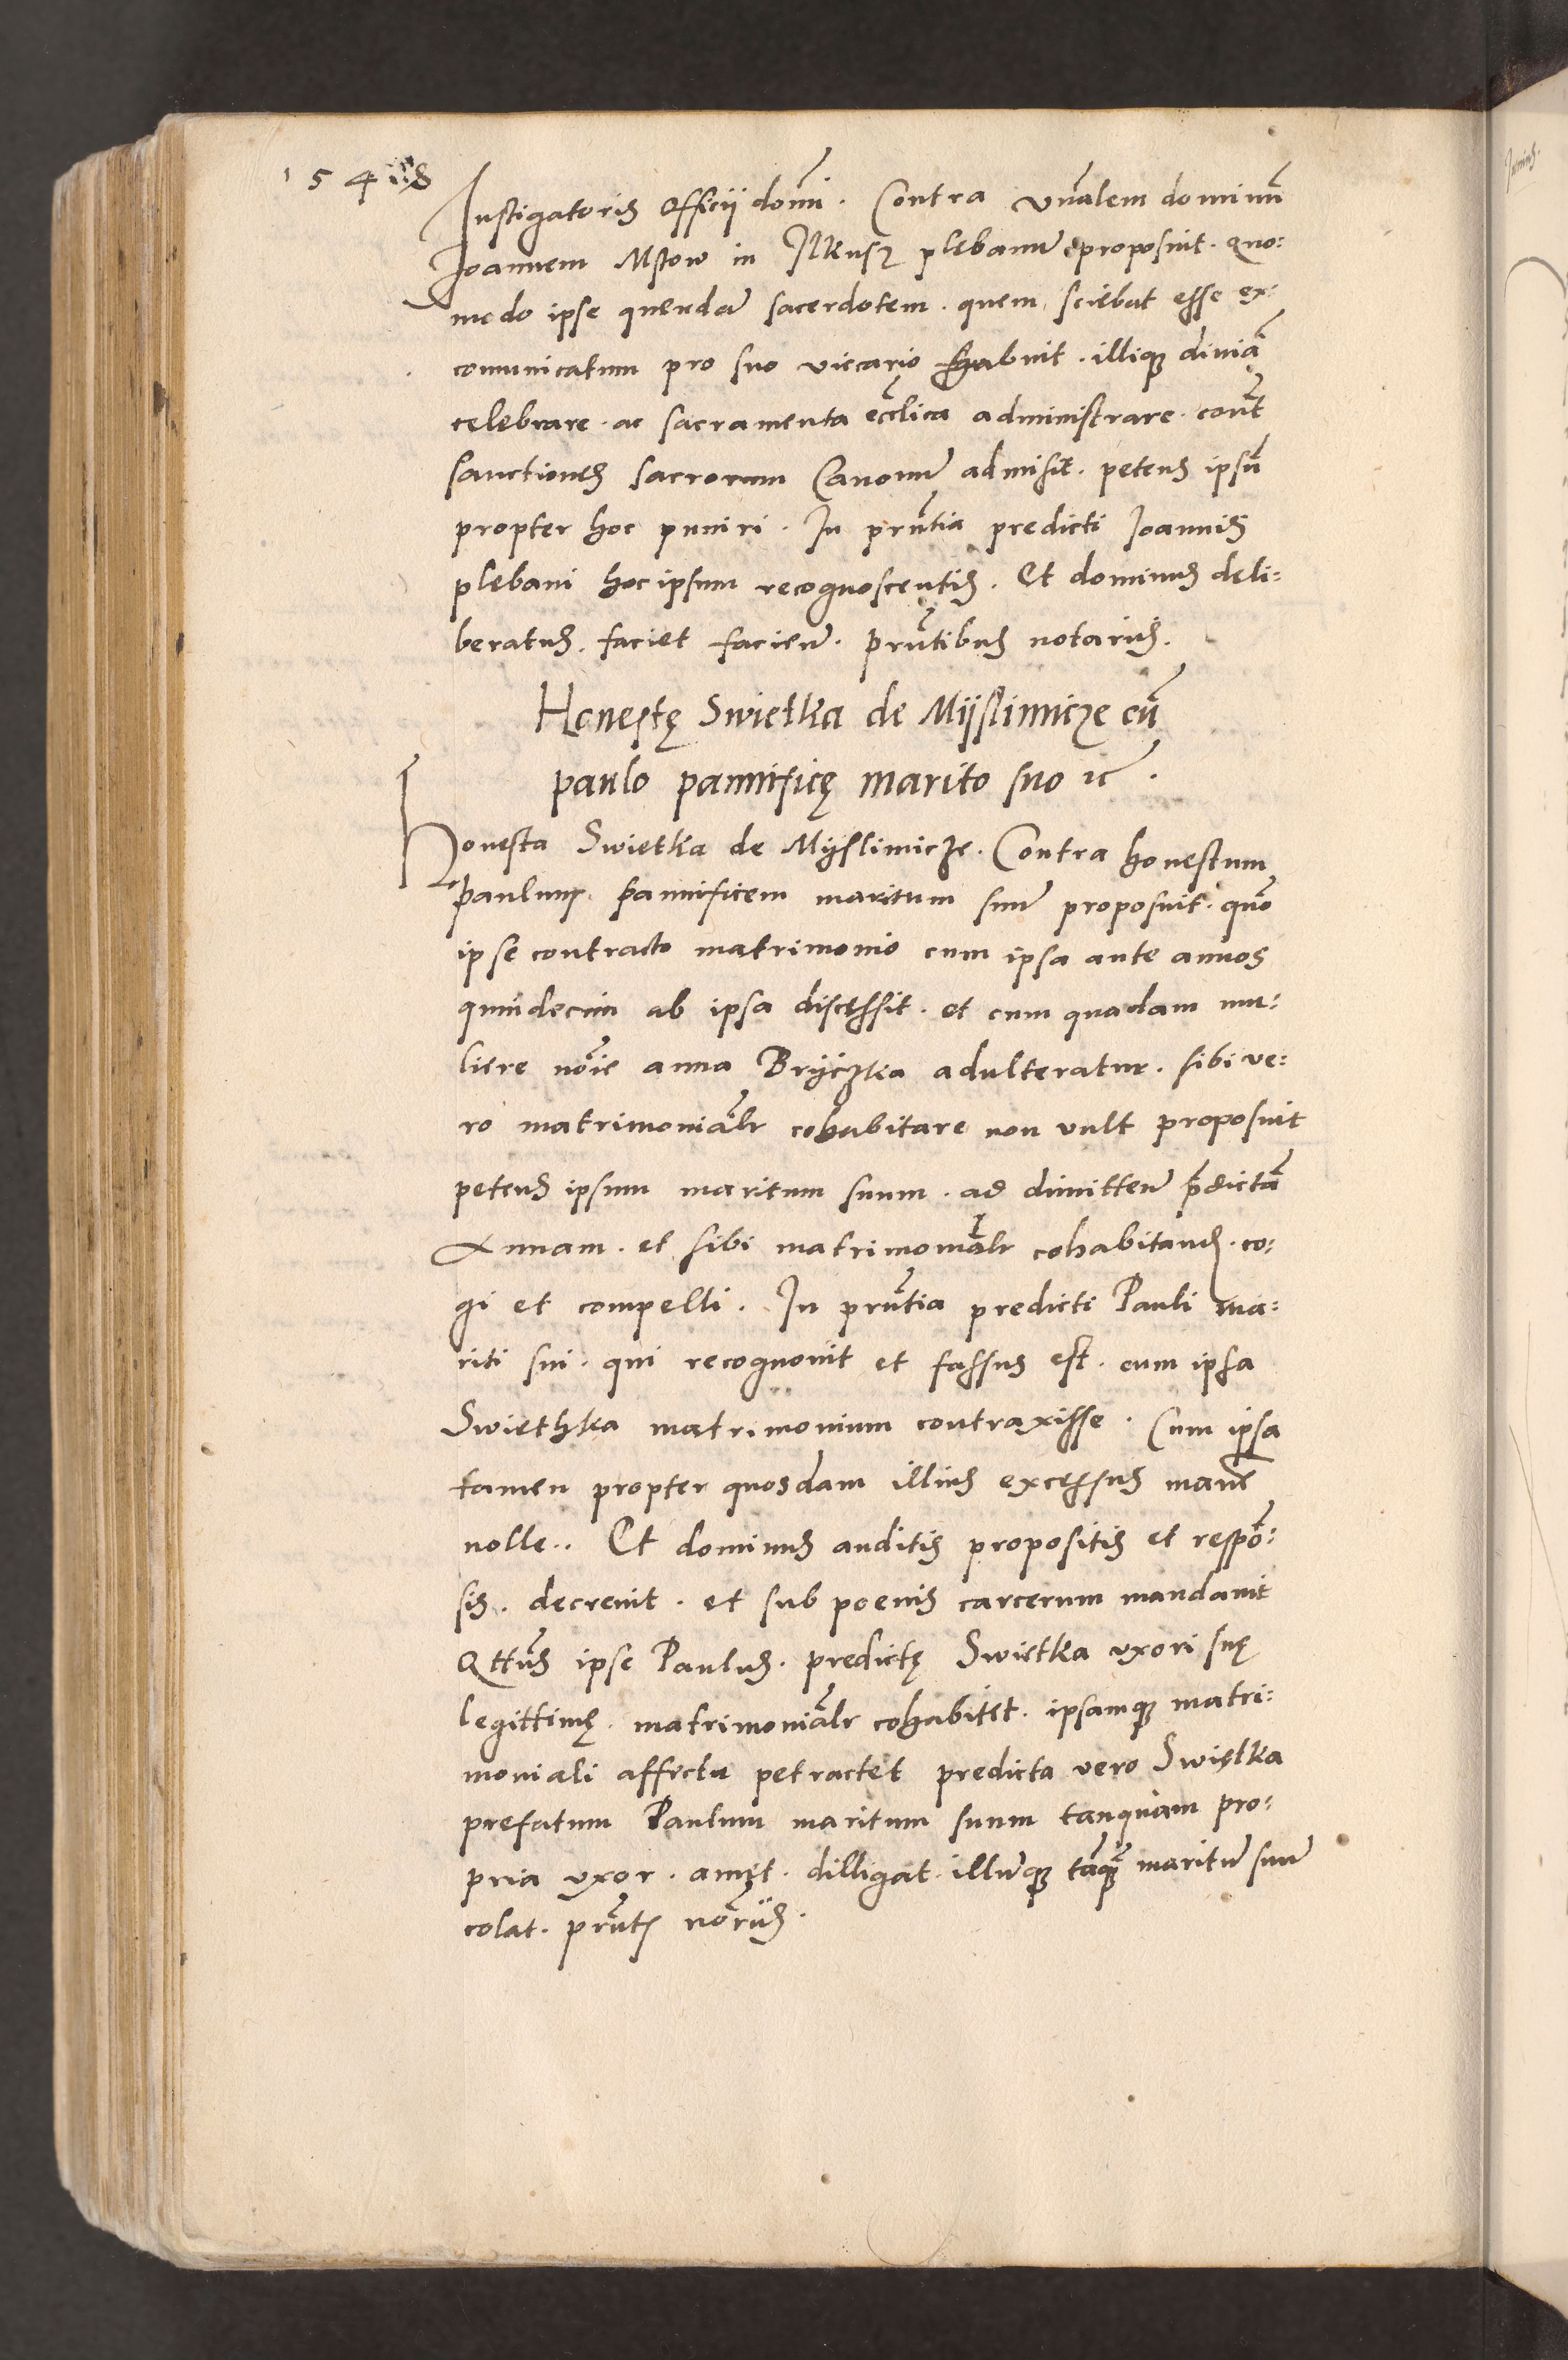 1548
Instigatoris officii domi͂. Contra vn͂alem dominu͂
Joannem Mstow in Ilkusz plebanu͂ proposuit. quo:
modo ipse quenda͂ sacerdotem. quem sciebat esse ex:
comunicatum pro suo viccario habuit. illiq₃ diuia͂
celebrare. ac sacramenta eccl͂ica administrare. cont͂
sanctiones sacrorum Canonu͂ admisit. petens ipsu͂
propter hoc puniri. In pru͂tia predicti Joannis
plebani hoc ipsum recognoscentis. Et dominus deli:
beratus. faciet facien͂. pru͂tibus notariis.
Honestę Swietka de Mÿslimicze cu͂
paulo pannificę marito suo ꝛc͂.
Honesta Swietka de Mÿslimicze. Contra honestum
paulum pannificem maritum suu͂ proposuit. quo͂
ipse contracto matrimonio cum ipsa ante annos
quindecim ab ipsa discęssit. et cum quadam mu:
liere no͂ie anna Brÿczka adulteratur. sibi ve:
ro matrimonia͂lr cohabitare non vult proposuit
petens ipsum maritum suum. ad dimitten͂ p͂dicta͂
Annam. et sibi matrimonia͂lr cohabitand͂. co:
gi et compelli. In pru͂tia predicti Pauli ma:
riti sui. qui recognouit et fassus est. cum ipsa
Swiethka matrimonium contraxisse. Cum ipsa
tamen propter quosdam illius excęssus mane͂
nolle.. Et dominus auditis propositis et respo͂:
sis. decreuit. et sub poenis carcerum mandauit
Qttu͂s ipse Paulus. predictę Swietka vxori suę
legittimę. matrimonia͂lr cohabitet. ipsamq₃ matri:
moniali affectu petractet predicta vero Swiętka
prefatum Paulum maritum suum tanquam pro:
pria vxor. amet. dilligat. illu͂q₃ ta͂q₃͂ maritu͂ suu͂
colat. pru͂t₃ no͂riis.